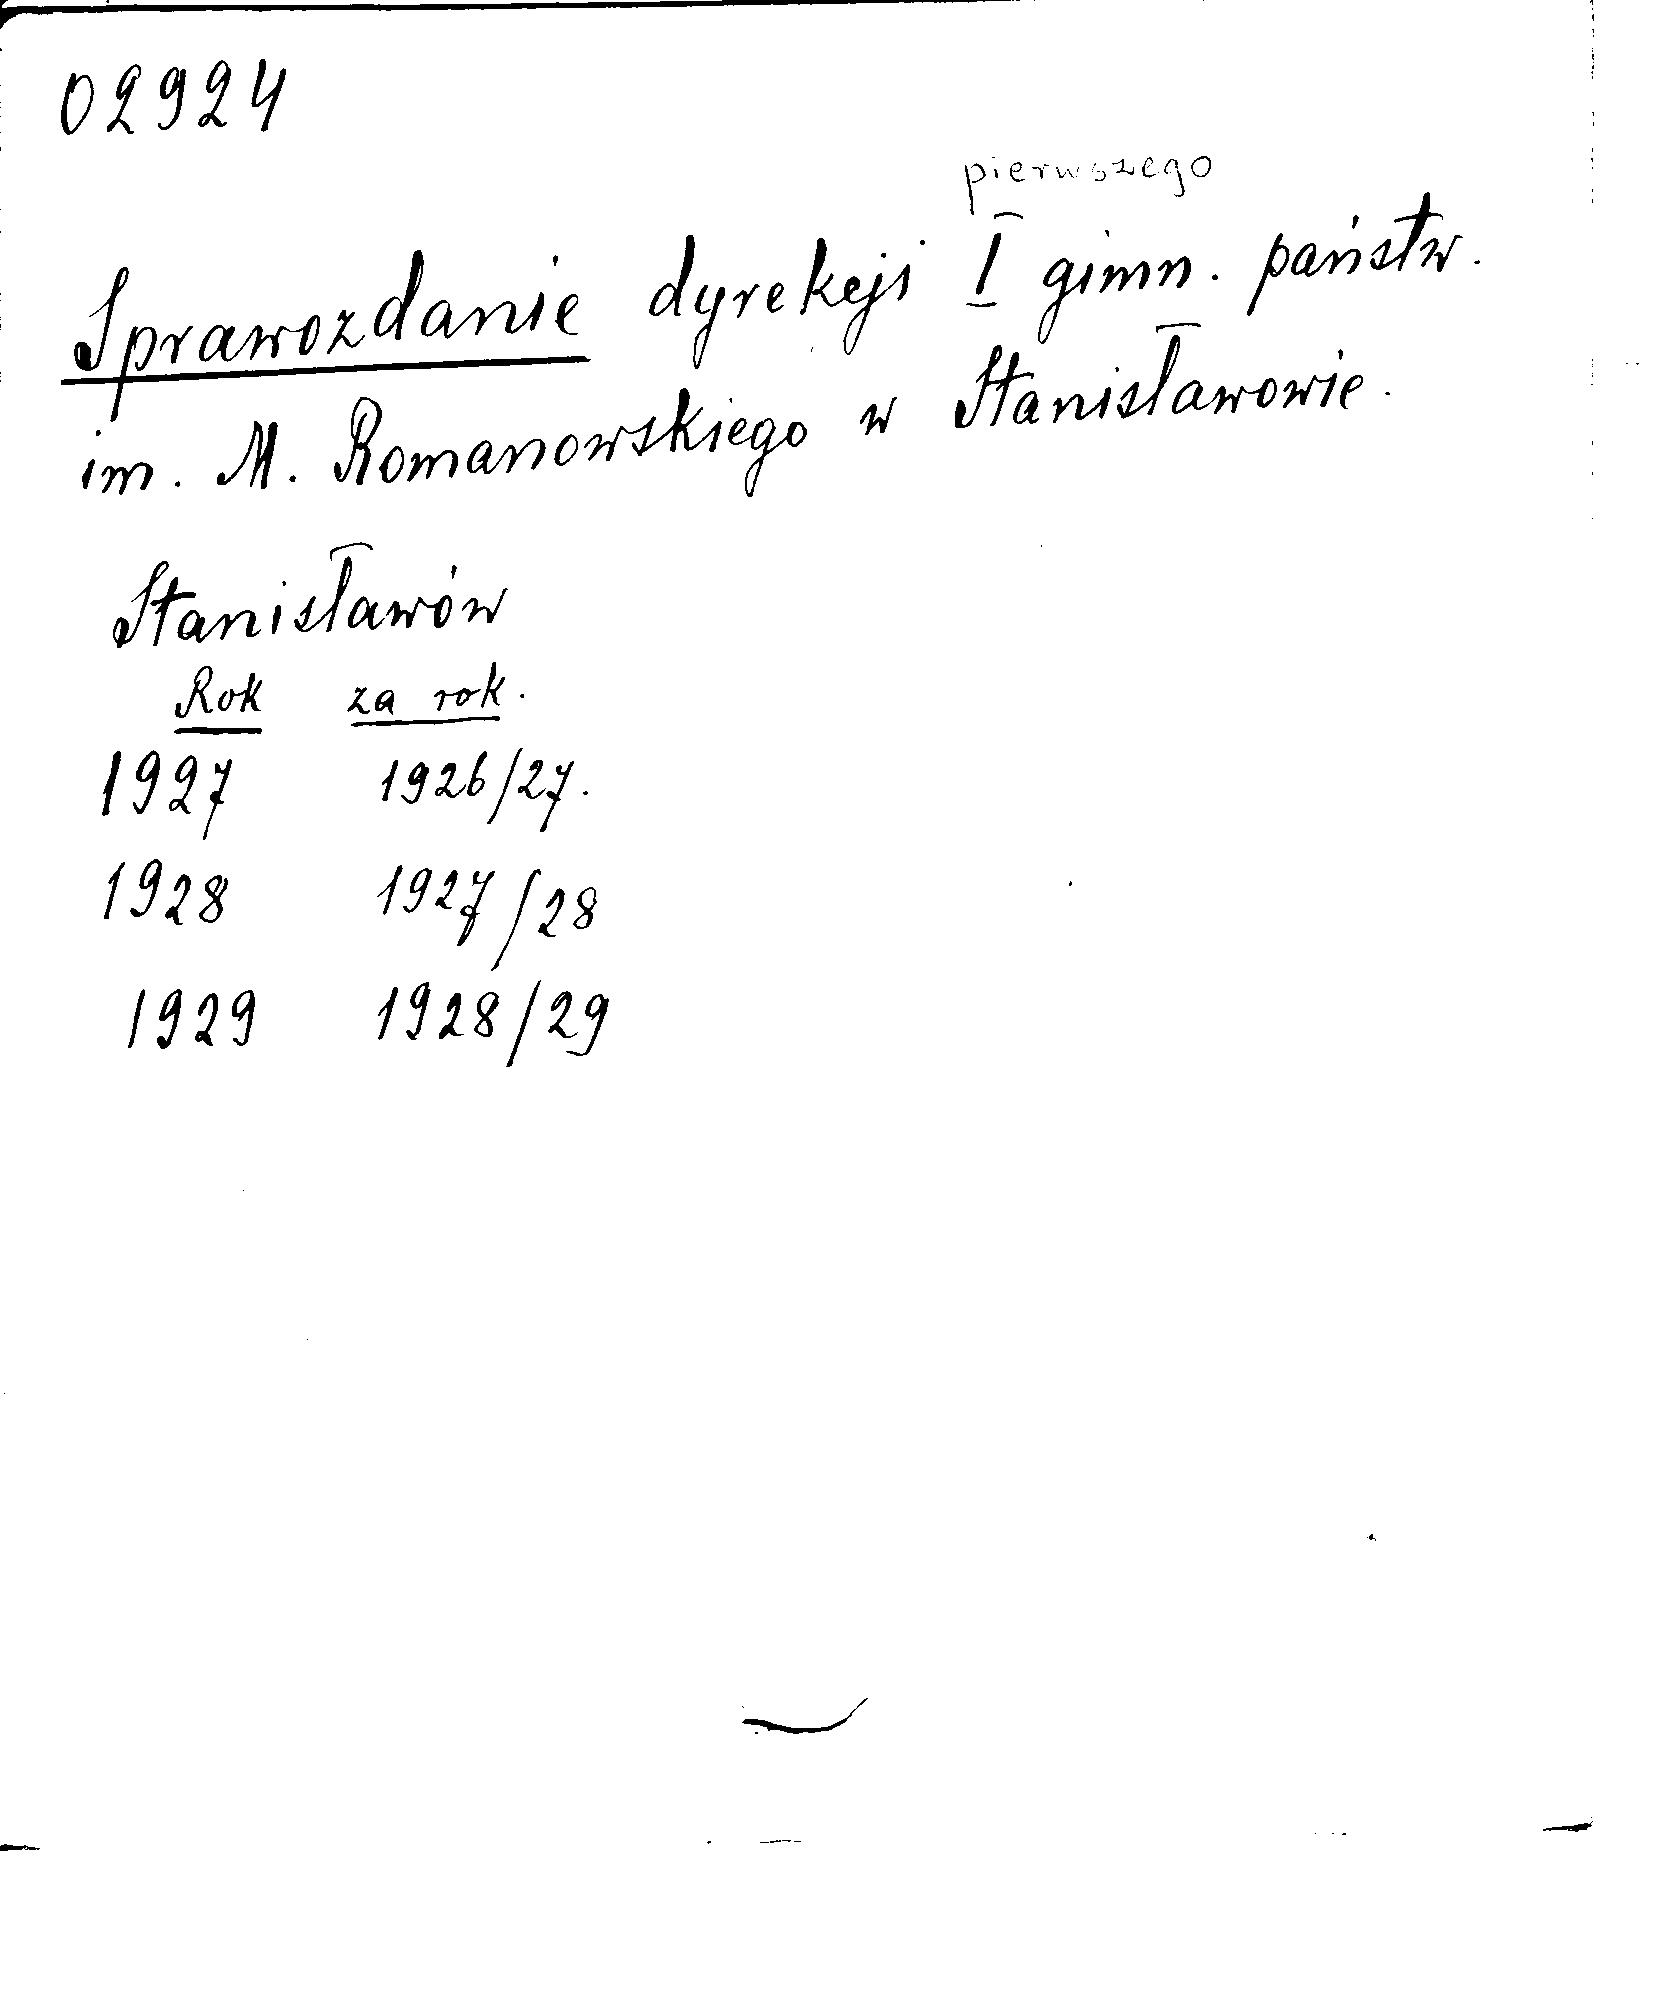 02924
pierwszego
Sprawozdanie dyrekcji I gimn. państw.
im. M. Romanowskiego w Stanisławowie.
Stanisławów
Rok za rok.
1927 1926/27.
1928 1927/28
1929 1928/29